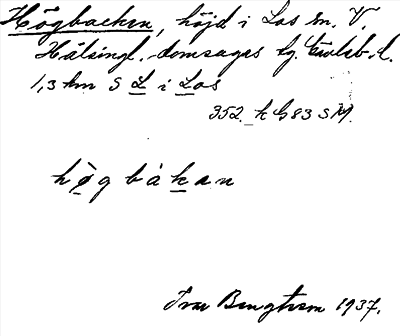 Högbacken, höjd i Los sn. V.
Hälsingl. domsagas tg. Gävleb. l.
1,3 km S L i Los
352. h G 83 SM.
högbåkan
Ivar Bengtsson 1937.